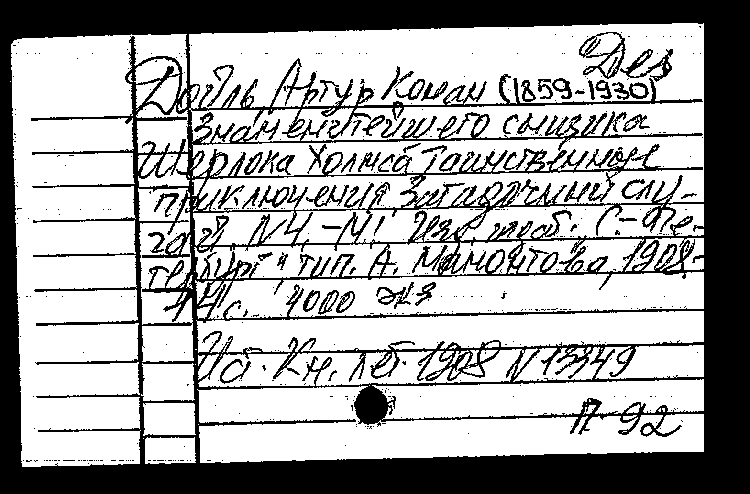 Дет
Дойль, Артур Конан (1859-1930)
Знаменитейшего сыщика
Шерлока Холмса Таинственные
приключения. Загадочный слу-
чай. N4. -М! Изд. С.-Пе-
тербург", тип. А. Мамонтова, 1908.-
44 с. 4000 экз
Кн. лет. 1908 N 13349
П-92